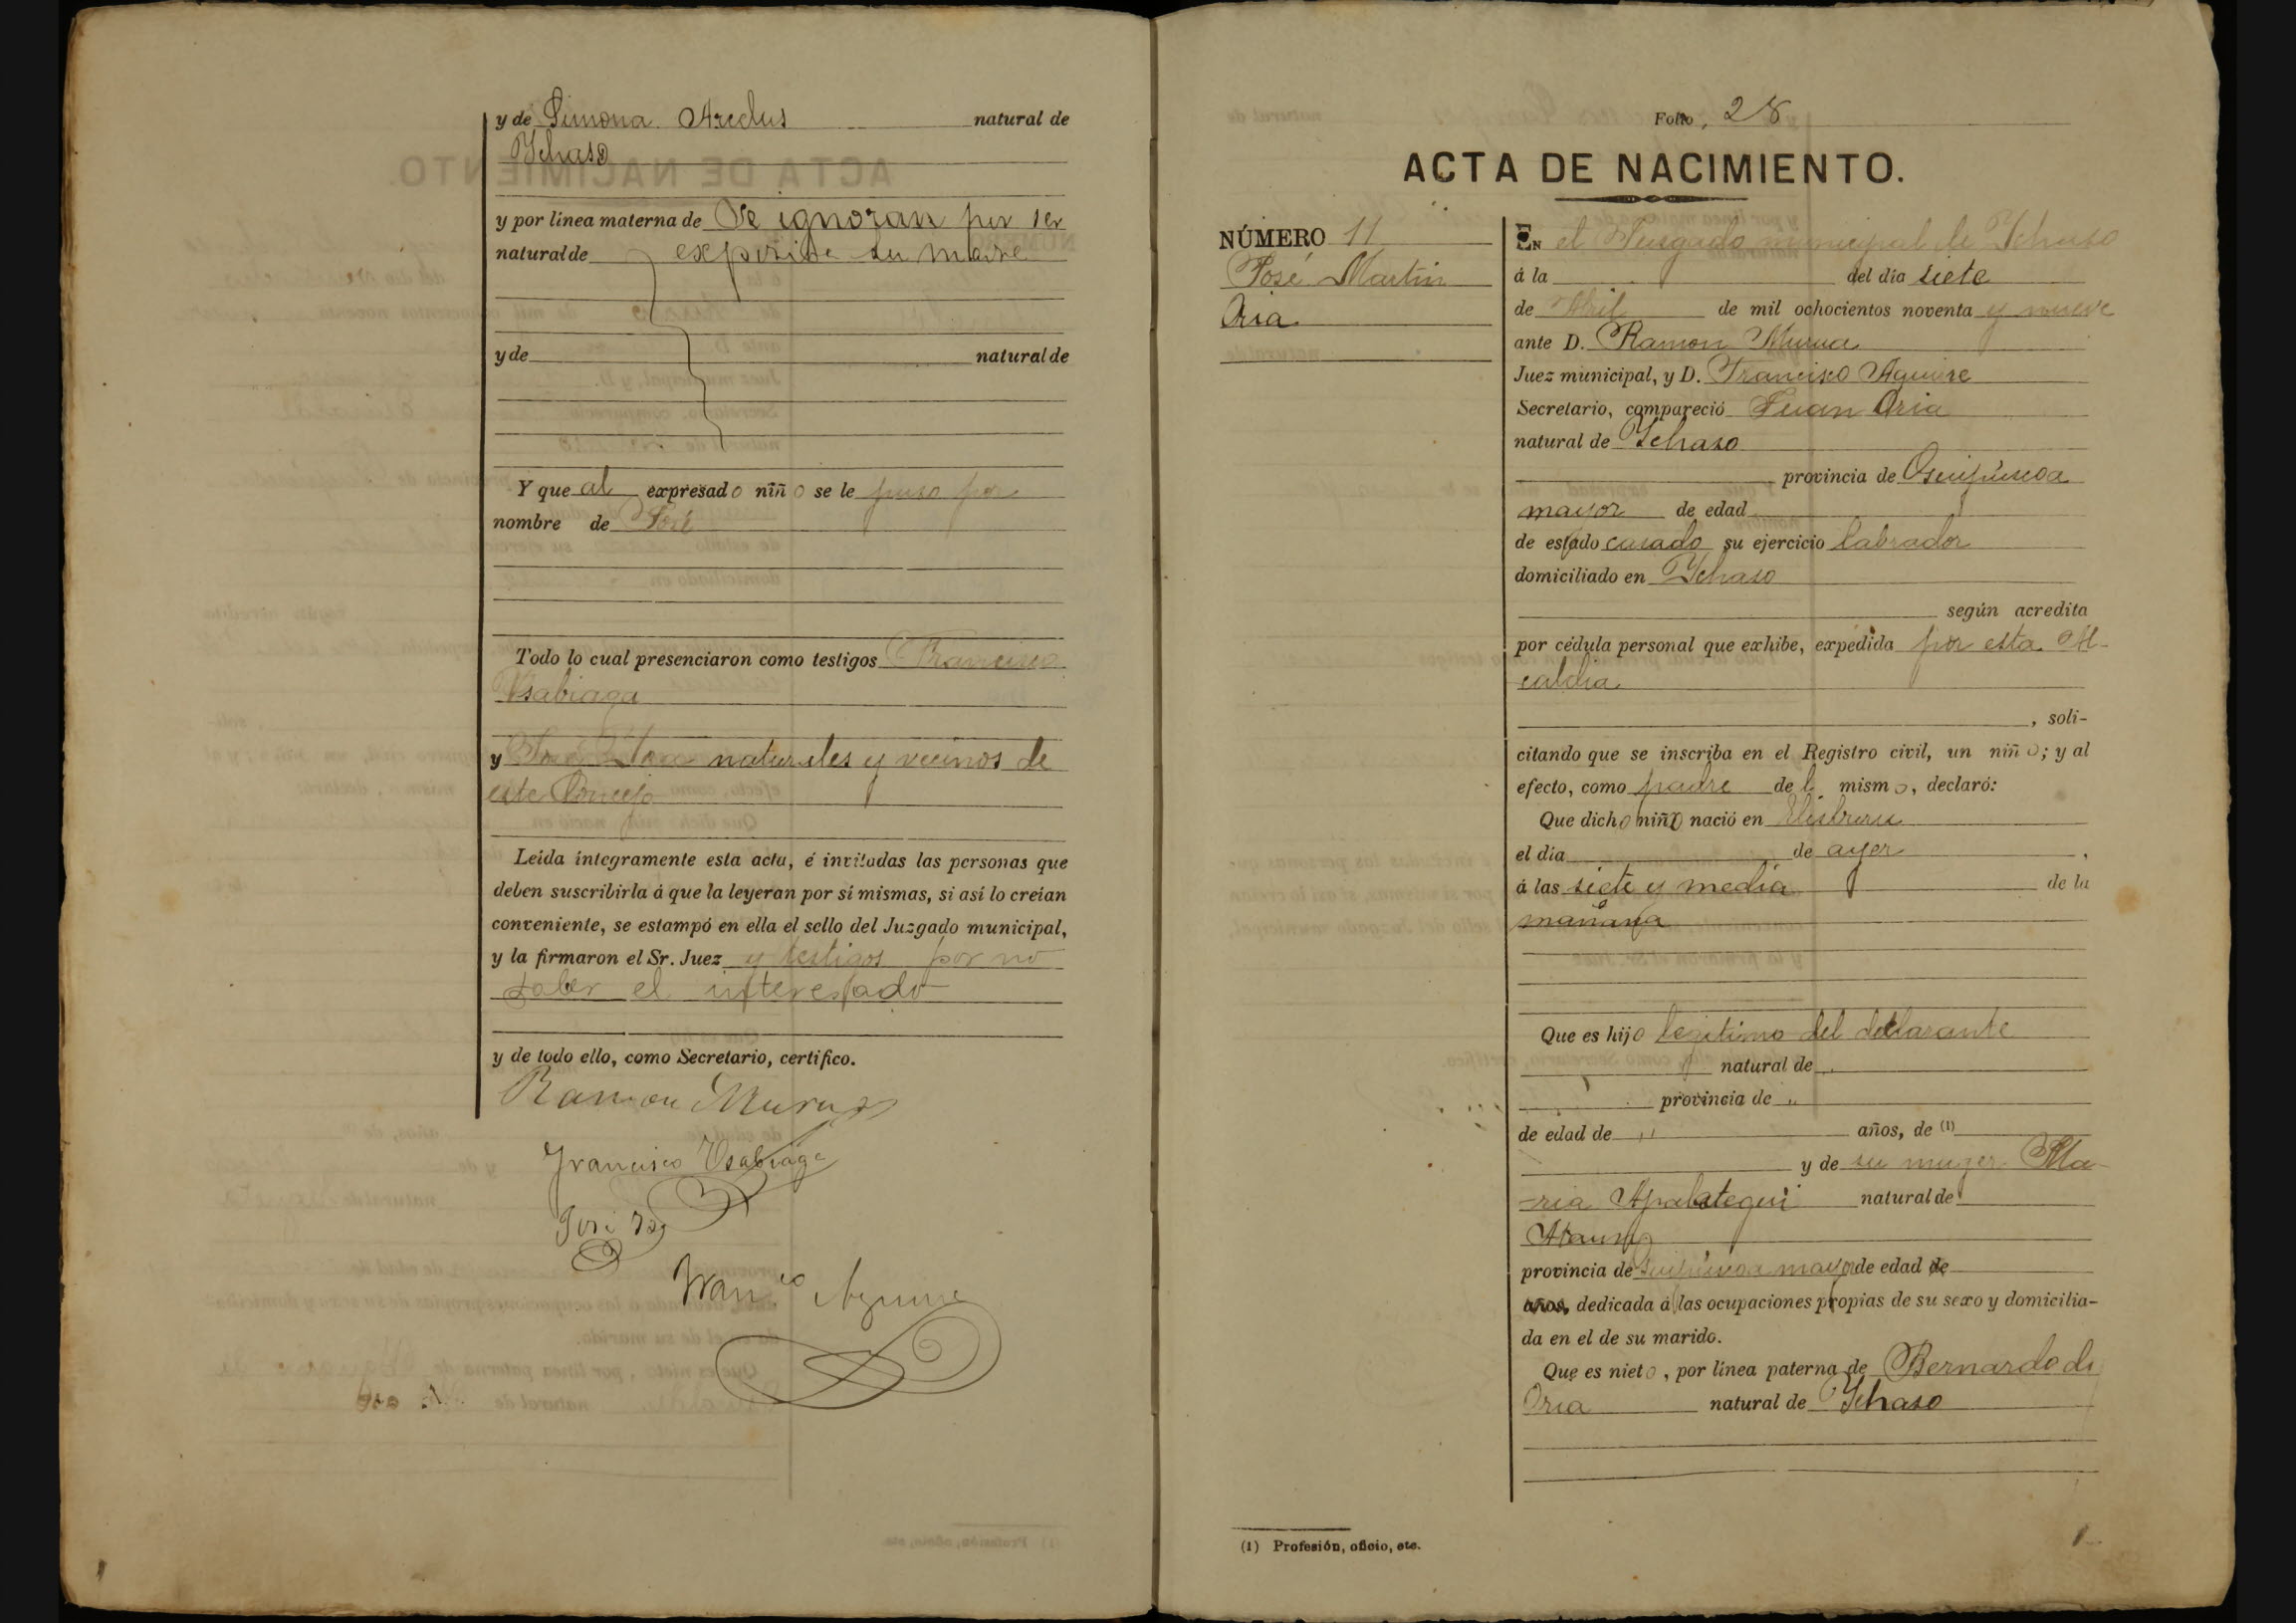 y de Simona Areclus natural de
Ychaso
y por línea materna de Se ignoran por ser
natural de expósita su madre
y de natural de
Y que al expresado niño se le puso por
nombre de José
Todo lo cual presenciaron como testigos Francisco
Usabiaga
y José naturales y vecinos de
este Concejo
Leída íntegramente esta acta, é invitadas las personas que
deben suscribirla á que la leyeran por sí mismas, si así lo creían
conveniente, se estampó en ella el sello del Juzgado municipal,
y la firmaron el Sr. Juez y testigos por no
saber el interesado
y de todo ello, como Secretario, certifico.
Ramon Murua
Francisco Usabiaga
José
Fran.co Aguirre
Folio, 28
ACTA DE NACIMIENTO.
NÚMERO 11
José Martin
Oria
EN el Juzgado municipal de Ychaso
á la del día siete
de Abril de mil ochocientos noventa y nueve
ante D. Ramon Murua
Juez municipal, y D. Francisco Aguirre
Secretario, compareció Juan Oria
natural de Ychaso
provincia de Guipúzcoa
mayor de edad
de estado casado su ejercicio labrador
domiciliado en Ychaso
según acredita
por cédula personal que exhibe, expedida por esta Al-
caldia
, soli-
citando que se inscriba en el Registro civil, un niño; y al
efecto, como padre del mismo, declaró:
Que dicho niño nació en
el día de ayer,
á las siete y media de la
mañana
Que es hijo legitimo del declarante
natural de "
provincia de "
de edad de " años, de (1)
y de su muger Ma-
ria Apalategui natural de
Ataun
provincia de Guipúzcoa mayor de edad de
años, dedicada á las ocupaciones propias de su sexo y domicilia-
da en el de su marido.
Que es nieto, por línea paterna de Bernardo de
Oria natural de Ychaso
(1) Profesión, oficio, etc.